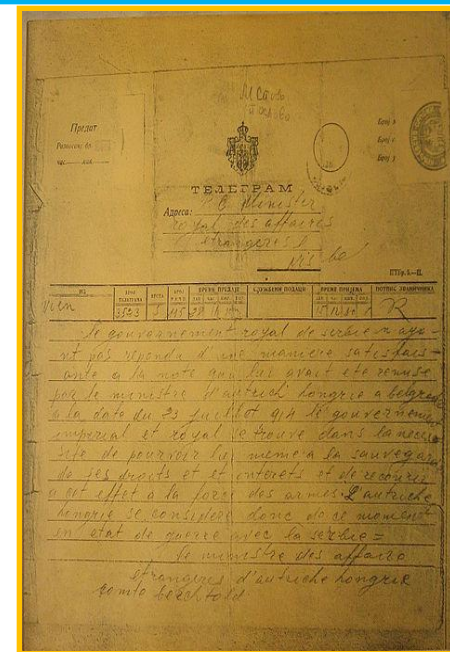 Предат
ТЕЛЕГРАМ
Адреса: C Minister
royal des affaires
etrangeres
Број
Број
Број
ИЗ
БРОЈ ТЕЛЕГРАМА
ВРСТА
БРОЈ РЕЧИ
ВРЕМЕ ПРЕДАЈЕ
СЛУЖБЕНИ ПОДАЦИ
ВРЕМЕ ПРИЈЕМА
ПОТПИС ЗВАНИЧНИКА
Vien 3523
le gouvernement royal de serbie n ayа-
nt pas repondu d une maniere satisfais-
ante a la note qui lui avait ete remise
par le ministre d autriche hongrie a belgrade
a la date du 23 juillet 914 le gouvernement
imperial et royal se trouve dans la neces
site de pourvoir lui meme a la sauvegarde
de ses droits et interets et de recourir
a cet effet a la force des armes. L autriche
hongrie se considere donc de ce moment
en etat de guerre avec la serbie =
le ministre des affaires
etrangeres d'autriche hongrie
comte berchtold